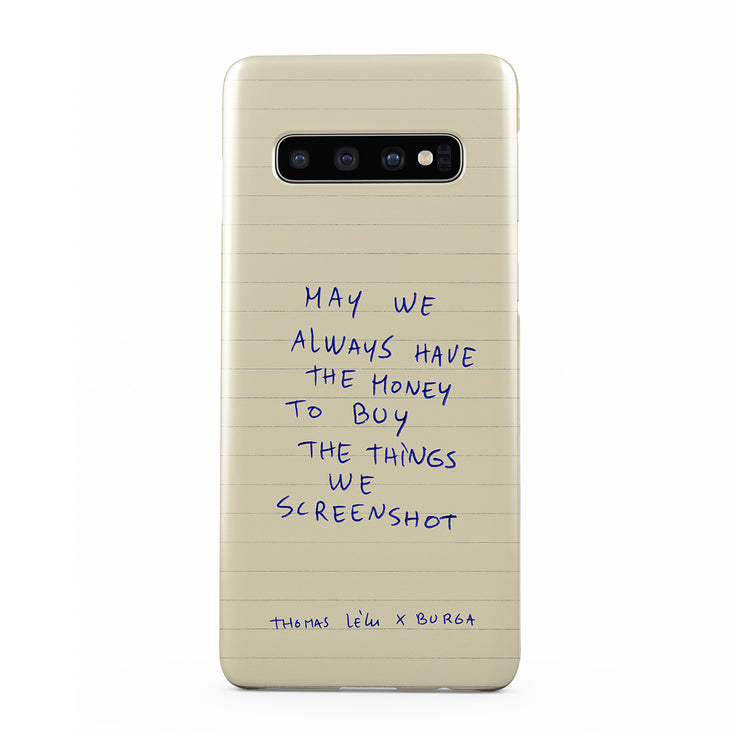 MAY WE
ALWAYS HAVE
THE MONEY
TO BUY
THE THINGS
WE
SCREENSHOT
THOMAS LÉLU X BURGA